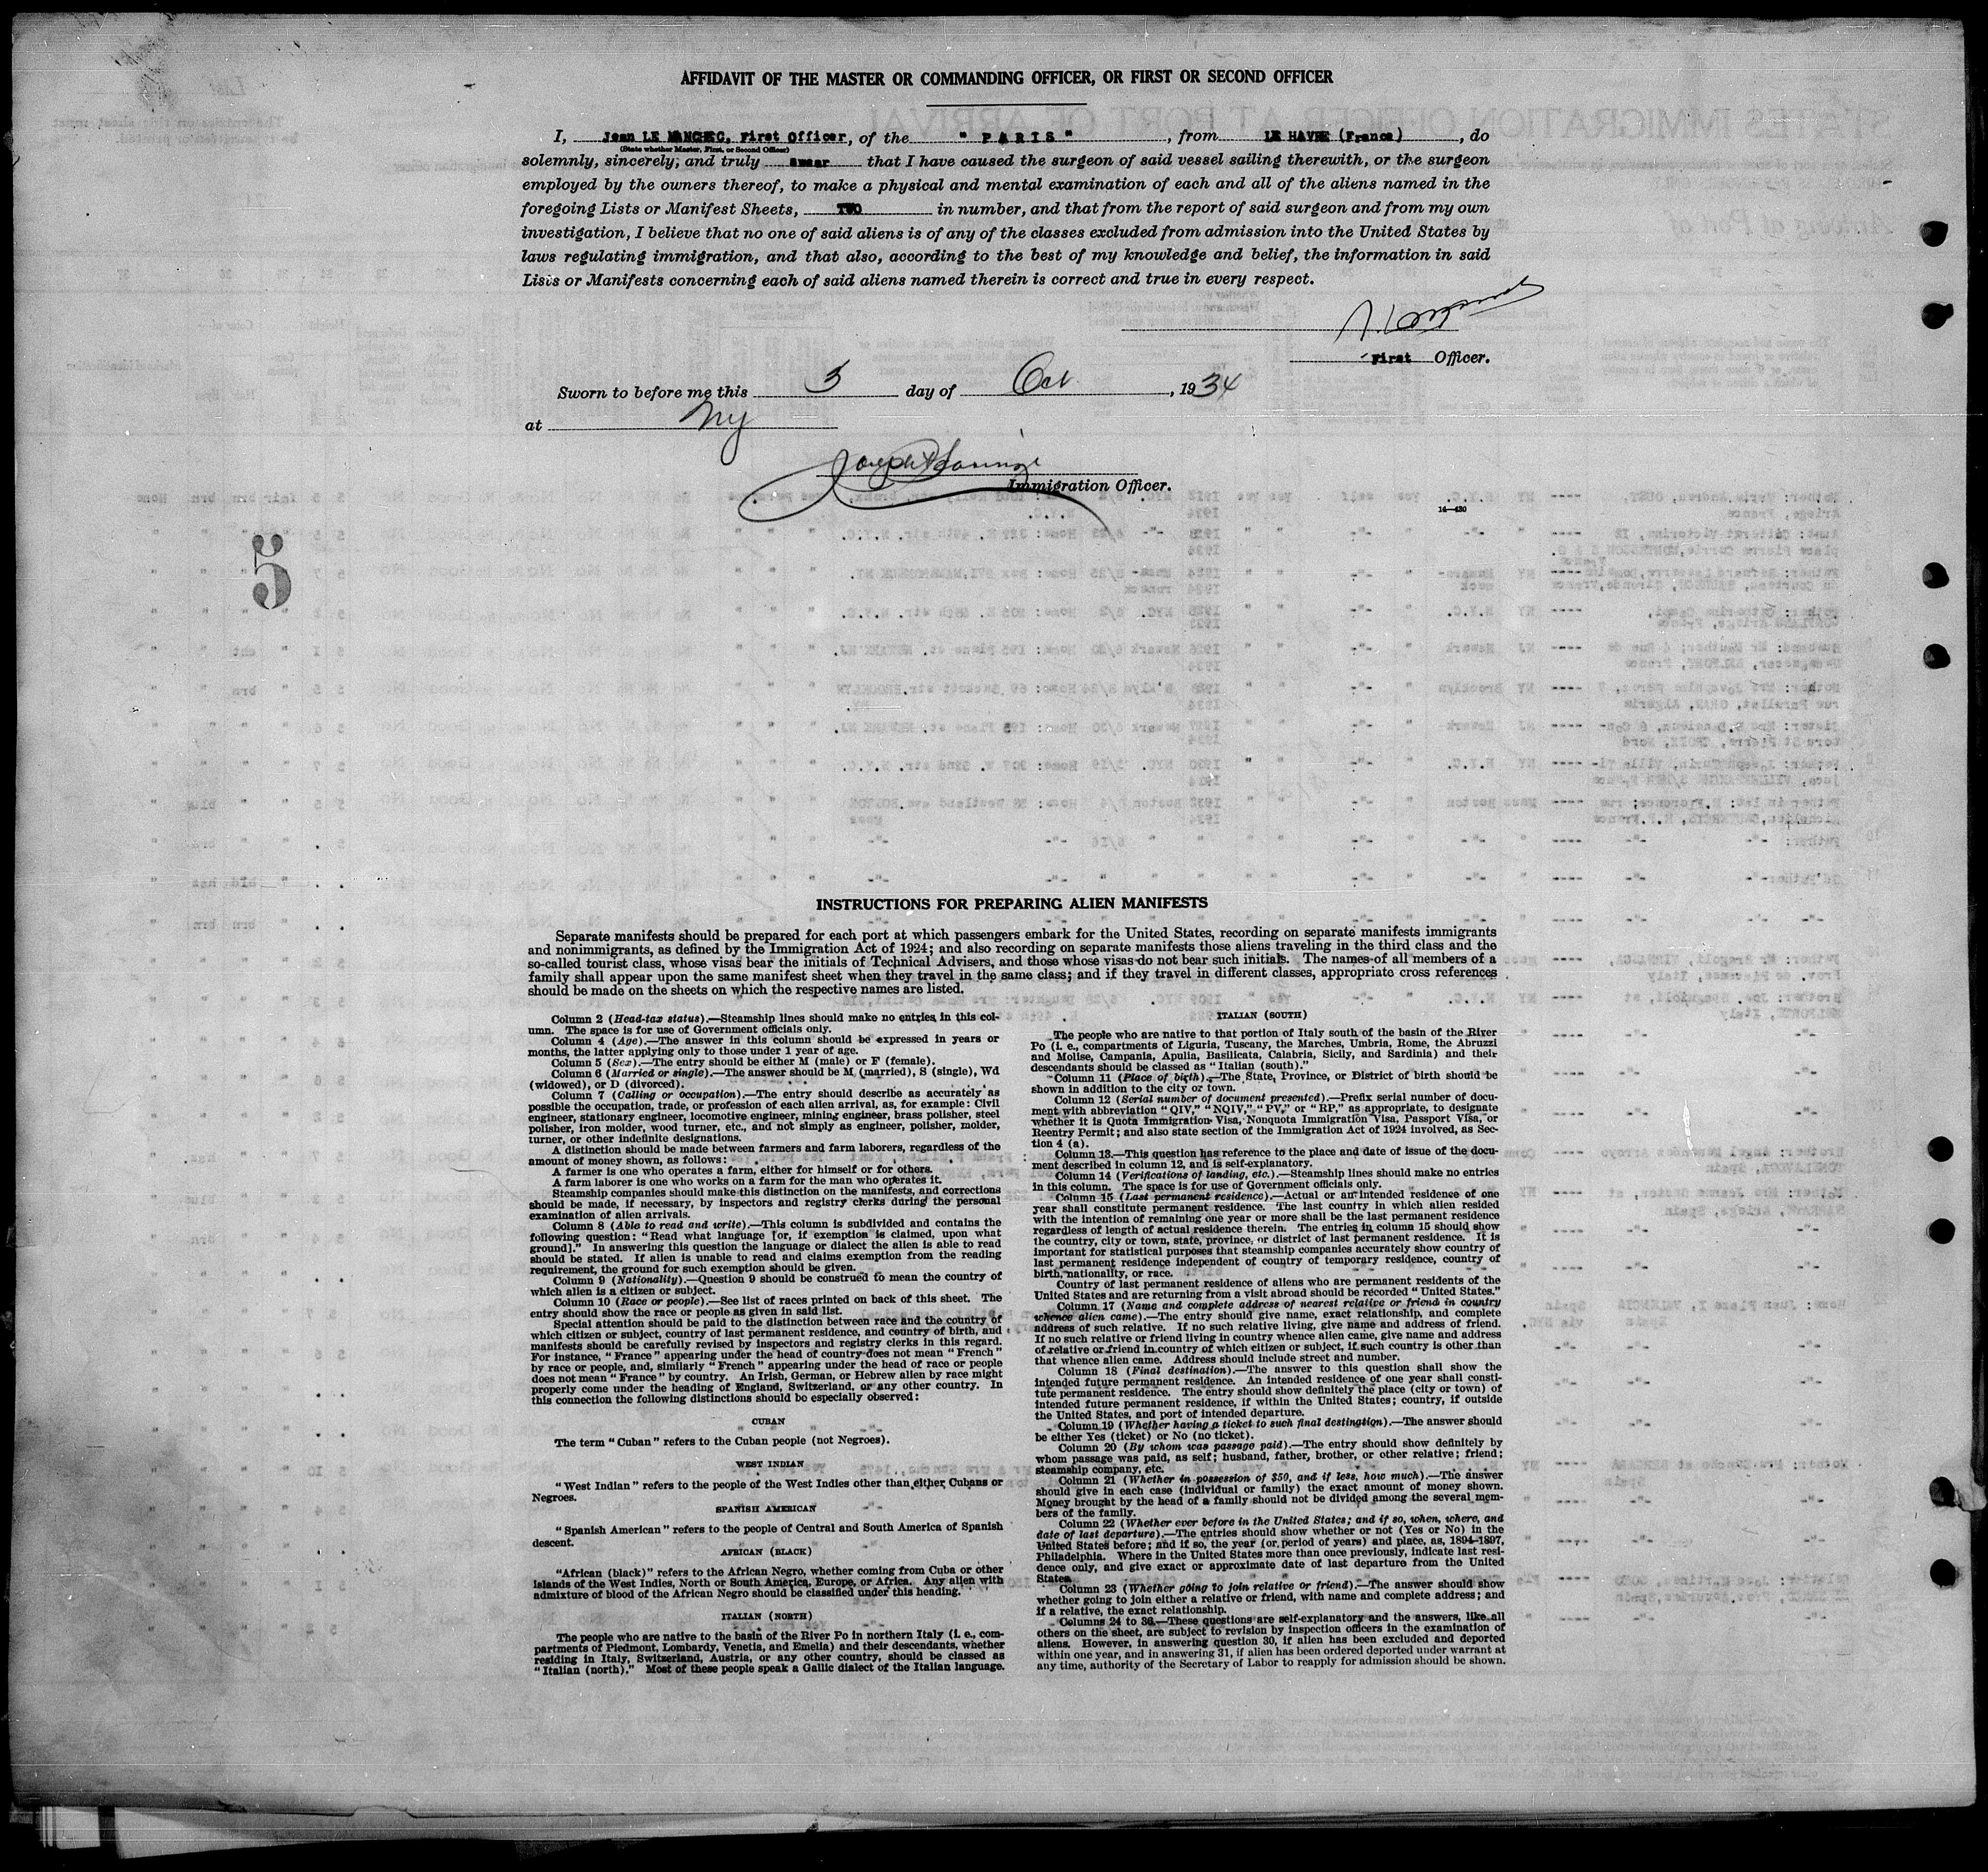 AFFIDAVIT OF THE MASTER OR COMMANDING OFFICER, OR FIRST OR SECOND OFFICER
I, Jean LE MANCHEC, First Officer, of the " PARIS ", from LE HAVRE (France), do
(State whether Master, First, or Second Officer)
solemnly, sincerely, and truly swear that I have caused the surgeon of said vessel sailing therewith, or the surgeon
employed by the owners thereof, to make a physical and mental examination of each and all of the aliens named in the
foregoing Lists or Manifest Sheets, TWO in number, and that from the report of said surgeon and from my own
investigation, I believe that no one of said aliens is of any of the classes excluded from admission into the United States by
laws regulating immigration, and that also, according to the best of my knowledge and belief, the information in said
Lists or Manifests concerning each of said aliens named therein is correct and true in every respect.
First Officer.
Sworn to before me this 3 day of Oct, 1934
at NY
Immigration Officer.
14—430
5
INSTRUCTIONS FOR PREPARING ALIEN MANIFESTS
Separate manifests should be prepared for each port at which passengers embark for the United States, recording on separate manifests immigrants
and nonimmigrants, as defined by the Immigration Act of 1924; and also recording on separate manifests those aliens traveling in the third class and the
so-called tourist class, whose visas bear the initials of Technical Advisers, and those whose visas do not bear such initials. The names of all members of a
family shall appear upon the same manifest sheet when they travel in the same class; and if they travel in different classes, appropriate cross references
should be made on the sheets on which the respective names are listed.
Column 2 (Head-tax status).—Steamship lines should make no entries in this col-
umn. The space is for use of Government officials only.
Column 4 (Age).—The answer in this column should be expressed in years or
months, the latter applying only to those under 1 year of age.
Column 5 (Sex).—The entry should be either M (male) or F (female).
Column 6 (Married or single).—The answer should be M (married), S (single), Wd
(widowed), or D (divorced).
Column 7 (Calling or occupation).—The entry should describe as accurately as
possible the occupation, trade, or profession of each alien arrival, as, for example: Civil
engineer, stationary engineer, locomotive engineer, mining engineer, brass polisher, steel
polisher, iron molder, wood turner, etc., and not simply as engineer, polisher, molder,
turner, or other indefinite designations.
A distinction should be made between farmers and farm laborers, regardless of the
amount of money shown, as follows:
A farmer is one who operates a farm, either for himself or for others.
A farm laborer is one who works on a farm for the man who operates it.
Steamship companies should make this distinction on the manifests, and corrections
should be made, if necessary, by inspectors and registry clerks during the personal
examination of alien arrivals.
Column 8 (Able to read and write).—This column is subdivided and contains the
following question: "Read what language [or, if exemption is claimed, upon what
ground]." In answering this question the language or dialect the alien is able to read
should be stated. If alien is unable to read and claims exemption from the reading
requirement, the ground for such exemption should be given.
Column 9 (Nationality).—Question 9 should be construed to mean the country of
which alien is a citizen or subject.
Column 10 (Race or people).—See list of races printed on back of this sheet. The
entry should show the race or people as given in said list.
Special attention should be paid to the distinction between race and the country of
which citizen or subject, country of last permanent residence, and country of birth, and
manifests should be carefully revised by inspectors and registry clerks in this regard.
For instance, "France" appearing under the head of country does not mean "French"
by race or people, and, similarly "French" appearing under the head of race or people
does not mean "France" by country. An Irish, German, or Hebrew alien by race might
properly come under the heading of England, Switzerland, or any other country. In
this connection the following distinctions should be especially observed:
CUBAN
The term "Cuban" refers to the Cuban people (not Negroes).
WEST INDIAN
"West Indian" refers to the people of the West Indies other than either Cubans or
Negroes.
SPANISH AMERICAN
"Spanish American" refers to the people of Central and South America of Spanish
descent.
AFRICAN (BLACK)
"African (black)" refers to the African Negro, whether coming from Cuba or other
islands of the West Indies, North or South America, Europe, or Africa. Any alien with
admixture of blood of the African Negro should be classified under this heading.
ITALIAN (NORTH)
The people who are native to the basin of the River Po in northern Italy (i. e., com-
partments of Piedmont, Lombardy, Venetia, and Emelia) and their descendants, whether
residing in Italy, Switzerland, Austria, or any other country, should be classed as
"Italian (north)." Most of these people speak a Gallic dialect of the Italian language.
ITALIAN (SOUTH)
The people who are native to that portion of Italy south of the basin of the River
Po (i. e., compartments of Liguria, Tuscany, the Marches, Umbria, Rome, the Abruzzi
and Molise, Campania, Apulia, Basilicata, Calabria, Sicily, and Sardinia) and their
descendants should be classed as "Italian (south)."
Column 11 (Place of birth).—The State, Province, or District of birth should be
shown in addition to the city or town.
Column 12 (Serial number of document presented).—Prefix serial number of docu-
ment with abbreviation "QIV," "NQIV," "PV," or "RP," as appropriate, to designate
whether it is Quota Immigration Visa, Nonquota Immigration Visa, Passport Visa, or
Reentry Permit; and also state section of the Immigration Act of 1924 involved, as Sec-
tion 4 (a).
Column 13.—This question has reference to the place and date of issue of the docu-
ment described in column 12, and is self-explanatory.
Column 14 (Verifications of landing, etc.).—Steamship lines should make no entries
in this column. The space is for use of Government officials only.
Column 15 (Last permanent residence).—Actual or an intended residence of one
year shall constitute permanent residence. The last country in which alien resided
with the intention of remaining one year or more shall be the last permanent residence
regardless of length of actual residence therein. The entries in column 15 should show
the country, city or town, state, province, or district of last permanent residence. It is
important for statistical purposes that steamship companies accurately show country of
last permanent residence independent of country of temporary residence, country of
birth, nationality, or race.
Country of last permanent residence of aliens who are permanent residents of the
United States and are returning from a visit abroad should be recorded "United States."
Column 17 (Name and complete address of nearest relative or friend in country
whence alien came).—The entry should give name, exact relationship, and complete
address of such relative. If no such relative living, give name and address of friend.
If no such relative or friend living in country whence alien came, give name and address
of relative or friend in country of which citizen or subject, if such country is other than
that whence alien came. Address should include street and number.
Column 18 (Final destination).—The answer to this question shall show the
intended future permanent residence. An intended residence of one year shall consti-
tute permanent residence. The entry should show definitely the place (city or town) of
intended future permanent residence, if within the United States; country, if outside
the United States, and port of intended departure.
Column 19 (Whether having a ticket to such final destination).—The answer should
be either Yes (ticket) or No (no ticket).
Column 20 (By whom was passage paid).—The entry should show definitely by
whom passage was paid, as self; husband, father, brother, or other relative; friend;
steamship company, etc.
Column 21 (Whether in possession of $50, and if less, how much).—The answer
should give in each case (individual or family) the exact amount of money shown.
Money brought by the head of a family should not be divided among the several mem-
bers of the family.
Column 22 (Whether ever before in the United States; and if so, when, where, and
date of last departure).—The entries should show whether or not (Yes or No) in the
United States before; and if so, the year (or period of years) and place, as, 1894-1897,
Philadelphia. Where in the United States more than once previously, indicate last resi-
dence only, and give exact or approximate date of last departure from the United
States.
Column 23 (Whether going to join relative or friend).—The answer should show
whether going to join either a relative or friend, with name and complete address; and
if a relative, the exact relationship.
Columns 24 to 36.—These questions are self-explanatory and the answers, like all
others on the sheet, are subject to revision by inspection officers in the examination of
aliens. However, in answering question 30, if alien has been excluded and deported
within one year, and in answering 31, if alien has been ordered deported under warrant at
any time, authority of the Secretary of Labor to reapply for admission should be shown.